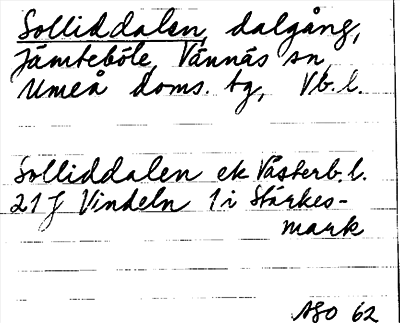 Solliddalen, dalgång,
Jämteböle, Vännäs sn
Umeå doms. tg, Vb. l.
Solliddalen ek Västerb. l.
21 J Vindeln 1 i Stärkes-
mark
ASO 62